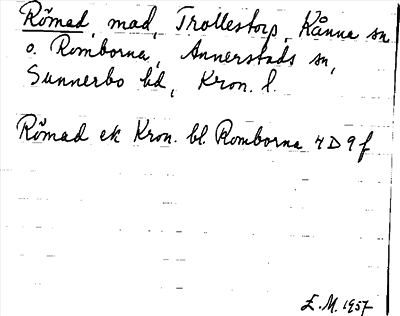 Römad, mad, Trollestorp, Kånna sn
o. Romborna, Annerstads sn,
Sunnerbo hd, Kron. l.
Römad ek Kron. bl. Romborna 4 D 9 f
E. M. 1957